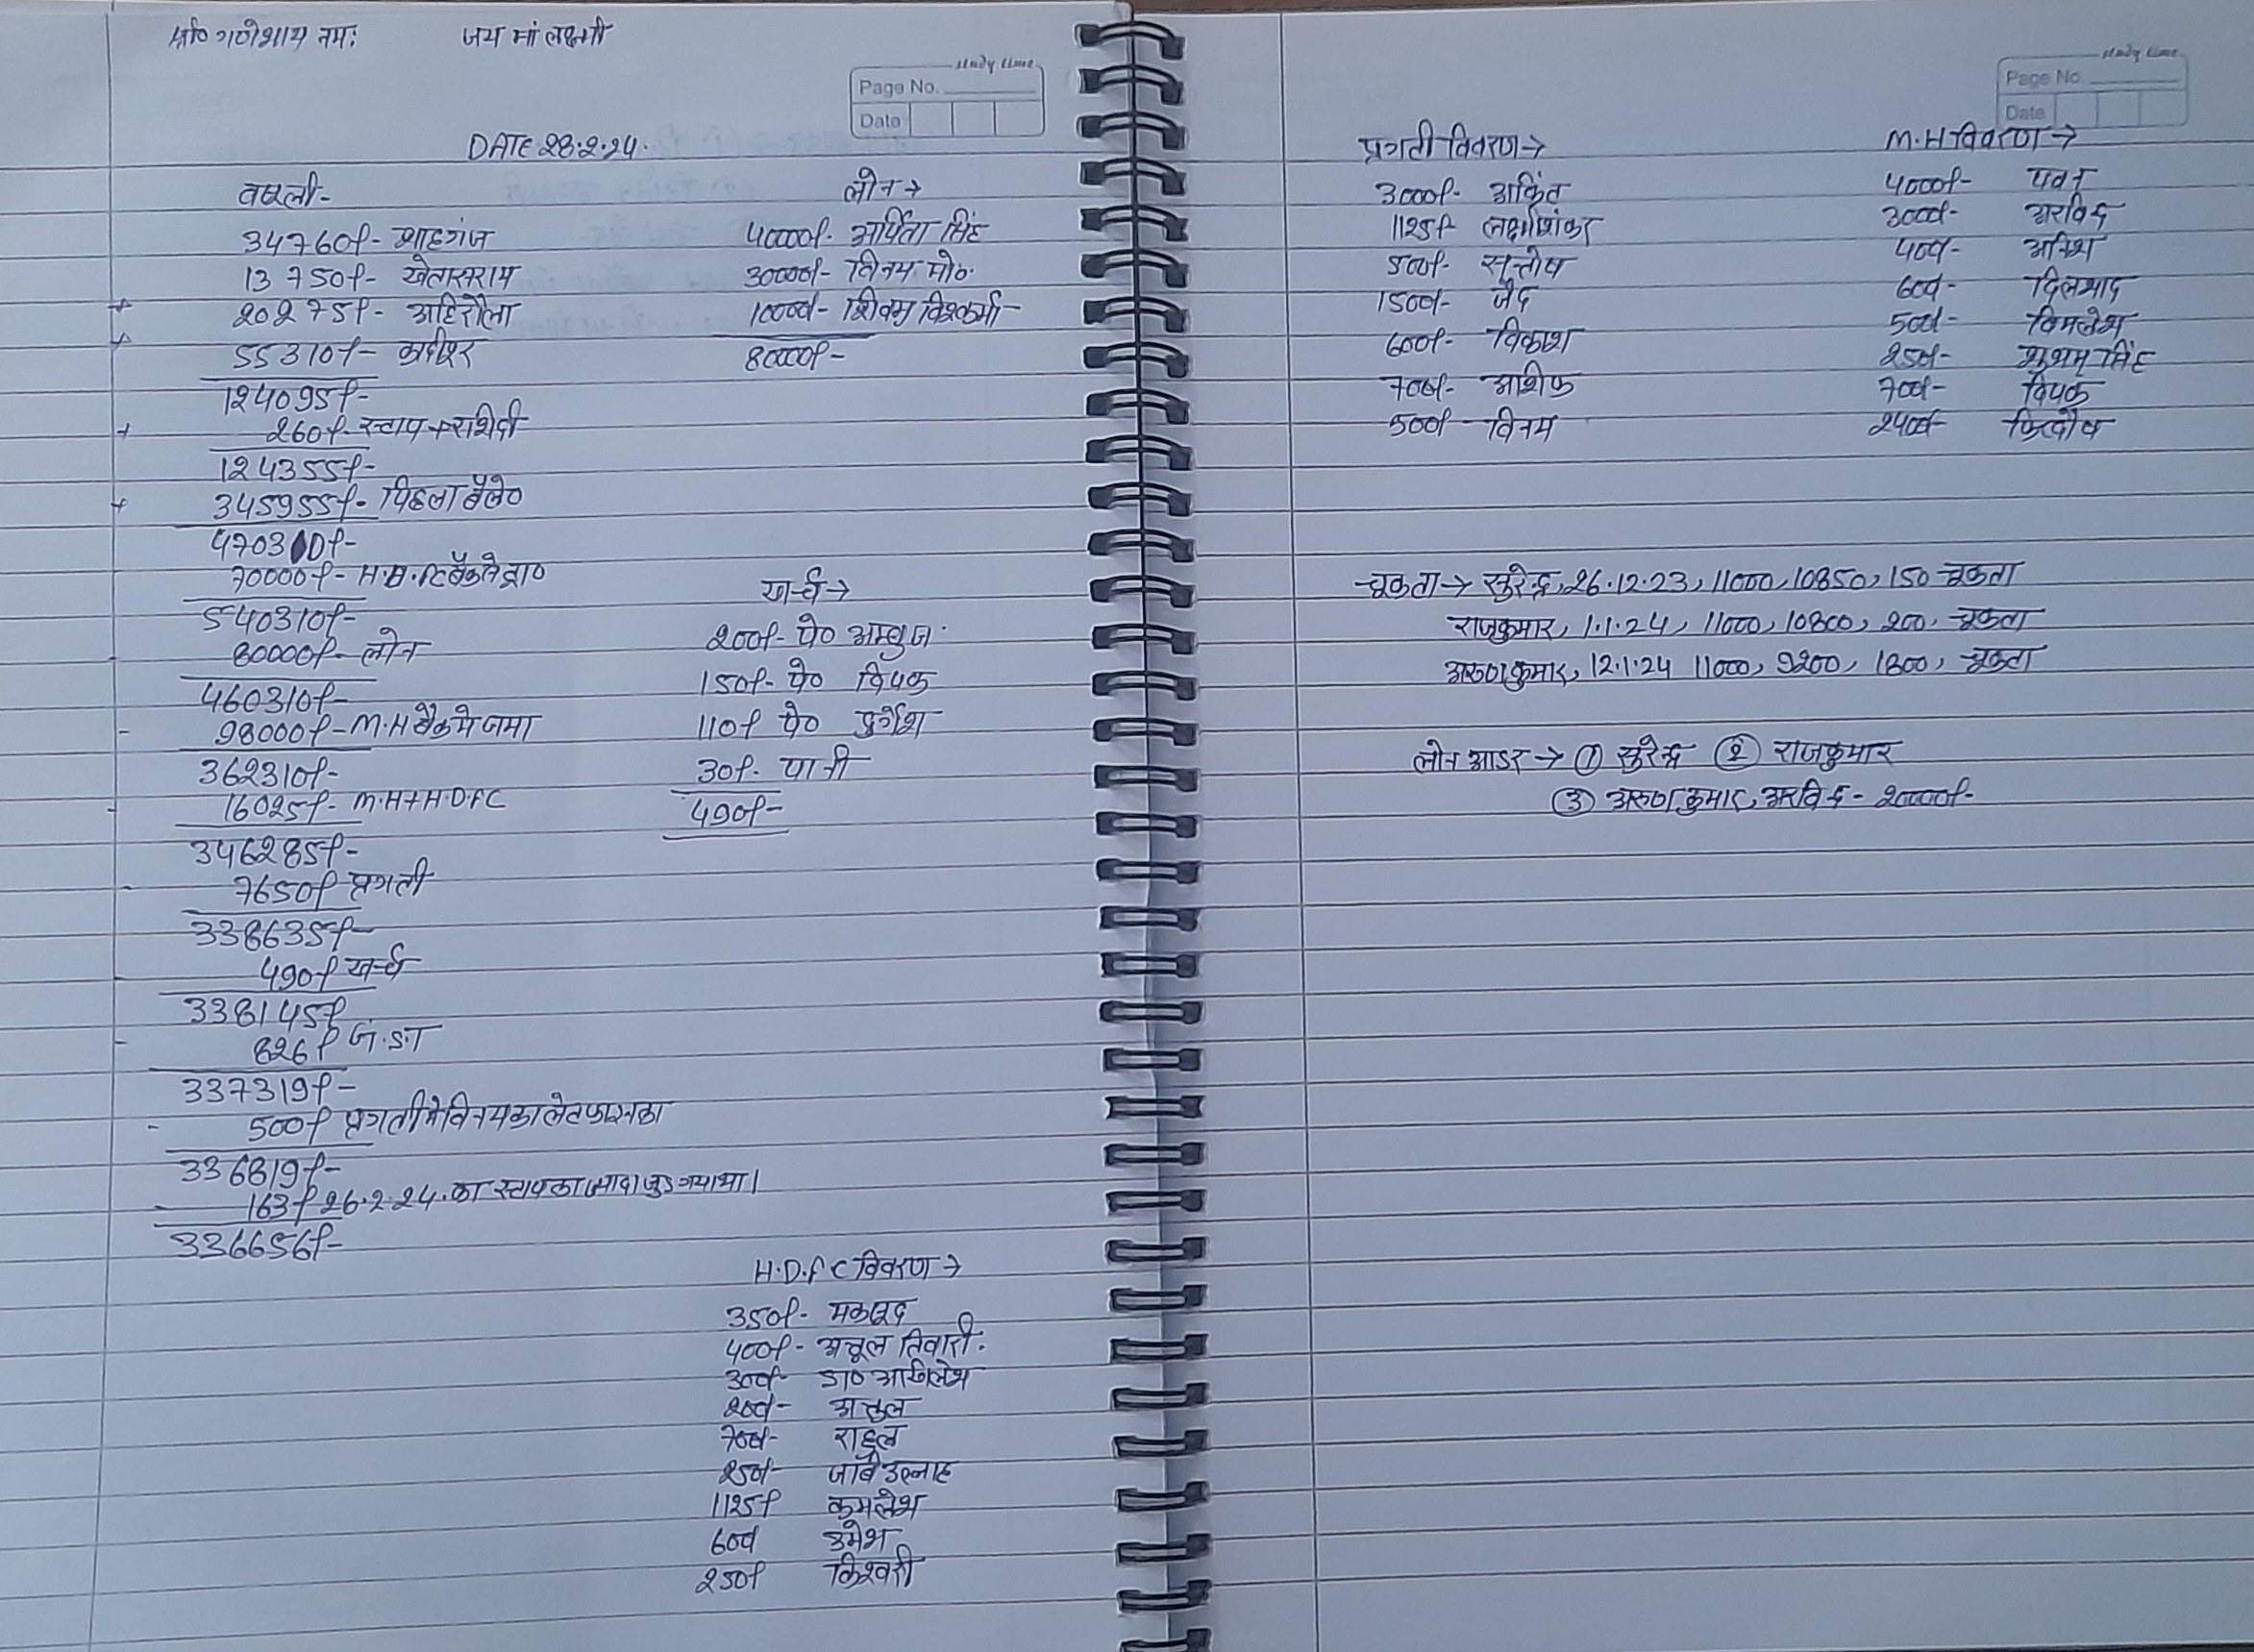 श्री० गणेशाय नमः जय मां लक्ष्मी
study time
Page No.
Date
DATE 28.2.24.
वसूली-
34760/- शाहगंज
13750/- खेतासराय
+ 20275/- अहिरौला
+ 55310/-
124095/-
+ 260/- स्टाप+रशिदी
124355/-
+ 345955/- पिछला बैले०
470310/-
70000/- H.D.FC बैंक से
540310/-
- 80000/- लोन
460310/-
- 98000/- M.H बैंक मे जमा
362310/-
- 16025/- M.H+H.D.FC
346285/-
- 7650/- प्रगती
338635/-
- 490/- खर्च
338145/-
- 826/- G.S.T
337319/-
- 500/- प्रगती मे विनय का लेट फाइन का
336819/-
- 163/- 26.2.24. का स्टाप का ज्यादा जुड गया था।
336656/-
लोन→
40000/- अर्पिता सिंह
30000/- विनय मो०
10000/- शिवम विश्वकर्मा
80000/-
खर्च→
200/- पे० अम्बुज
150/- पे० दिपक
110/- पे० दुर्गेश
30/- पानी
490/-
H.D.F C विवरण→
350/- मकसूद
400/- अतुल तिवारी.
300/- डा० अखिलेश
200/- अतुल
700/- राहुल
250/-
1125/- कमलेश
600/- उमेश
250/-
study time
Page No.
Date
प्रगती विवरण→
3000/- अंकित
1125/-
500/- सन्तोष
1500/- जैद
600/- विकाश
700/- आशीफ
500/- विनय
M.H विवरण→
4000/- पवन
3000/- अरविन्द
400/- अनिश
600/- दिलशाद
500/- विमलेश
250/- शुभम सिंह
700/- दिपक
2400/-
चूकता→ सुरेन्द्र, 26.12.23, 11000, 10850, 150 चूकता
राजकुमार, 1.1.24, 11000, 10800, 200, चूकता
अरुण कुमार, 12.1.24 11000, 9200, 1800, चूकता
लोन आडर→ ① सुरेन्द्र ② राजकुमार
③ अरुण कुमार, अरविन्द - 20000/-